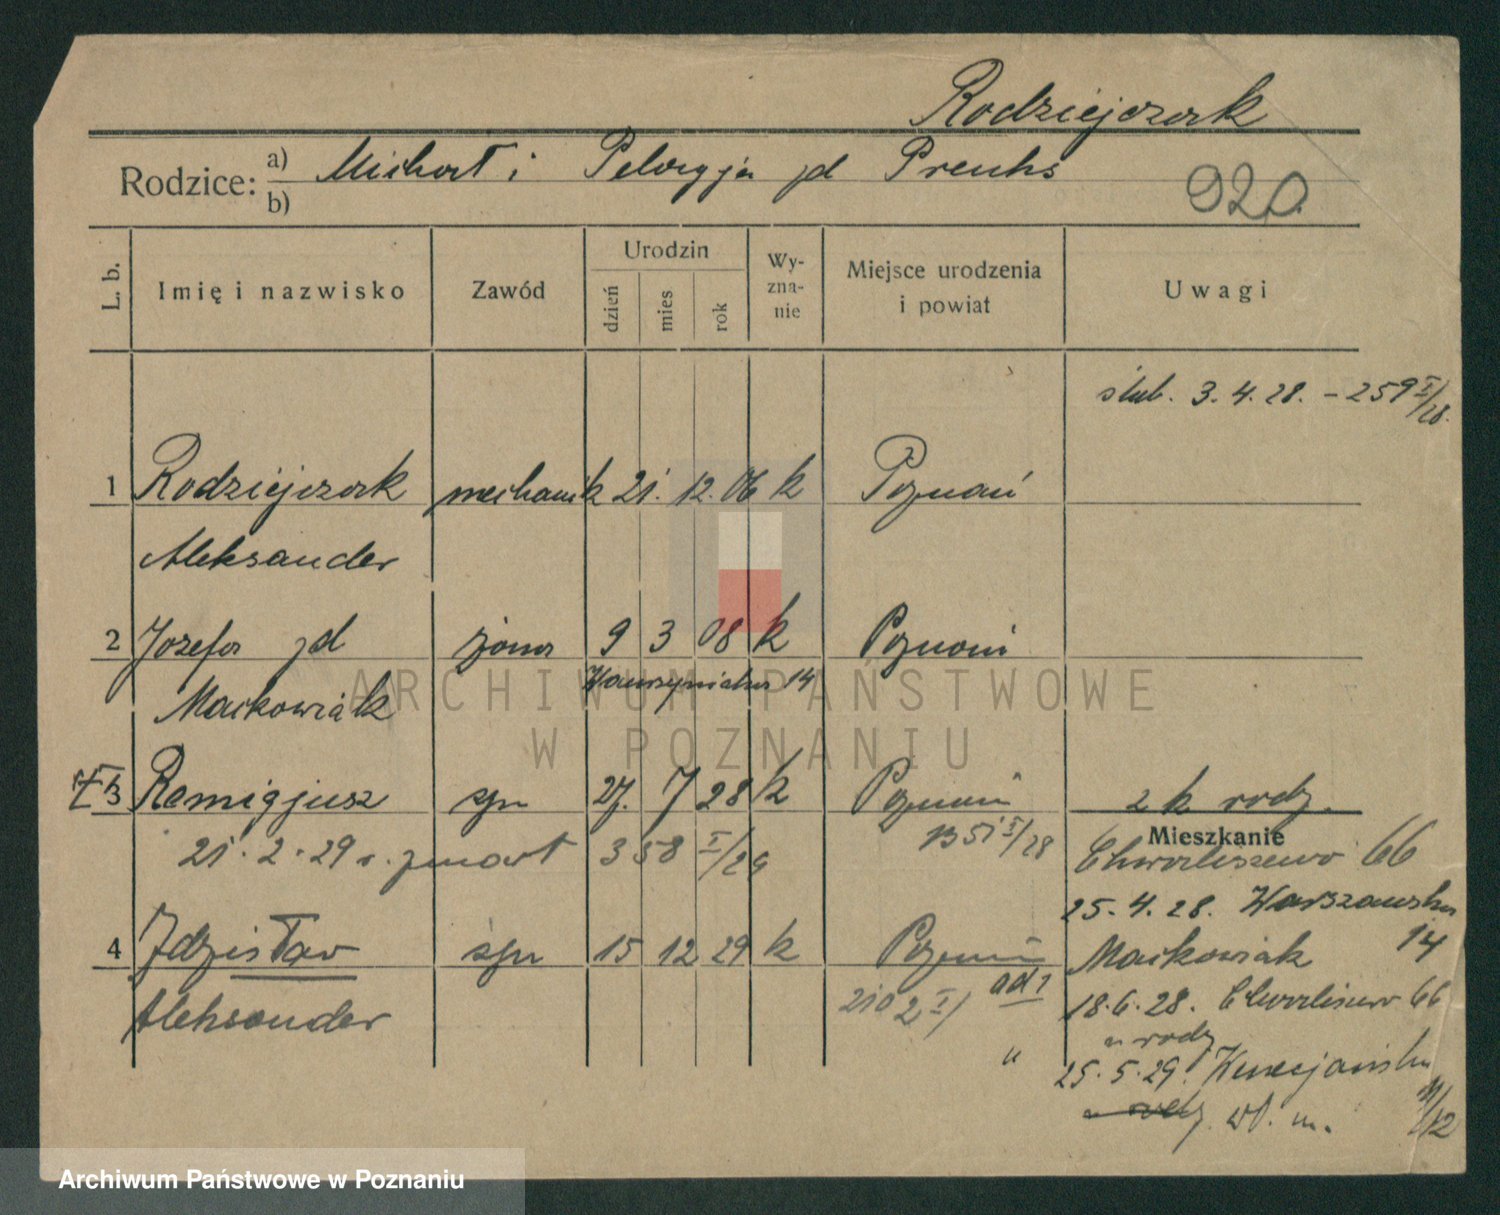 Rodziejczak
Rodzice: a) Michał i Pelagja zd Preuhs
b)
920.
L. b.
Imię i nazwisko
Zawód
Urodzin
dzień
mies
rok
Wy-
zna-
nie
Miejsce urodzenia
i powiat
Uwagi
ślub. 3. 4. 28. - 259 I/28.
1 Rodziejczak mechanik 21. 12. 06 k Poznań
Aleksander
2 Józefa zd żona 9 3 08 k Poznań
Wawrzyniaka 14
Maćkowiak
3 Remigjusz syn 27. 7 28 k Poznań z k rodz.
21. 2. 29 r. zmarł 358 I/29
B 51 I/28
Mieszkanie
Chwaliszewo 66
25. 4. 28. Warszawska
14
4 Zdzisław syn 15 12 29 k Poznań
Maćkowiak
Aleksander
2102 I/ ad 1
18. 6. 28. Chwaliszewo 66
u rodz.
"
25. 5. 29. Wenecjańska
11/12
u rodz. wł. m.
ARCHIWUM PAŃSTWOWE
W POZNANIU
Archiwum Państwowe w Poznaniu